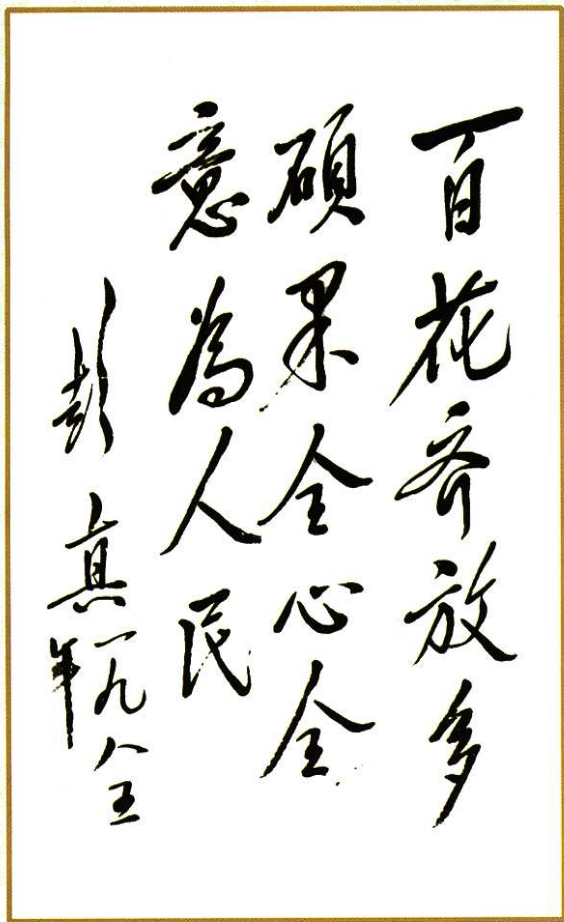 百花齐放多
硕果全心全
意为人民
彭真
一九八五
年